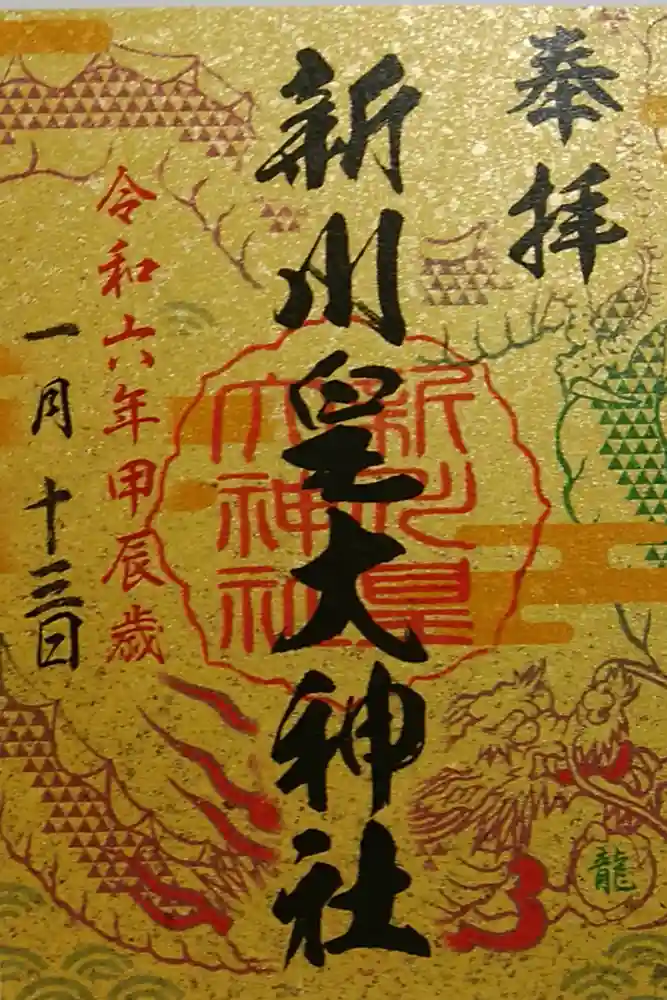 奉拝
新川皇大神社
令和六年甲辰歳
一月十三日
新川皇
大神社
龍